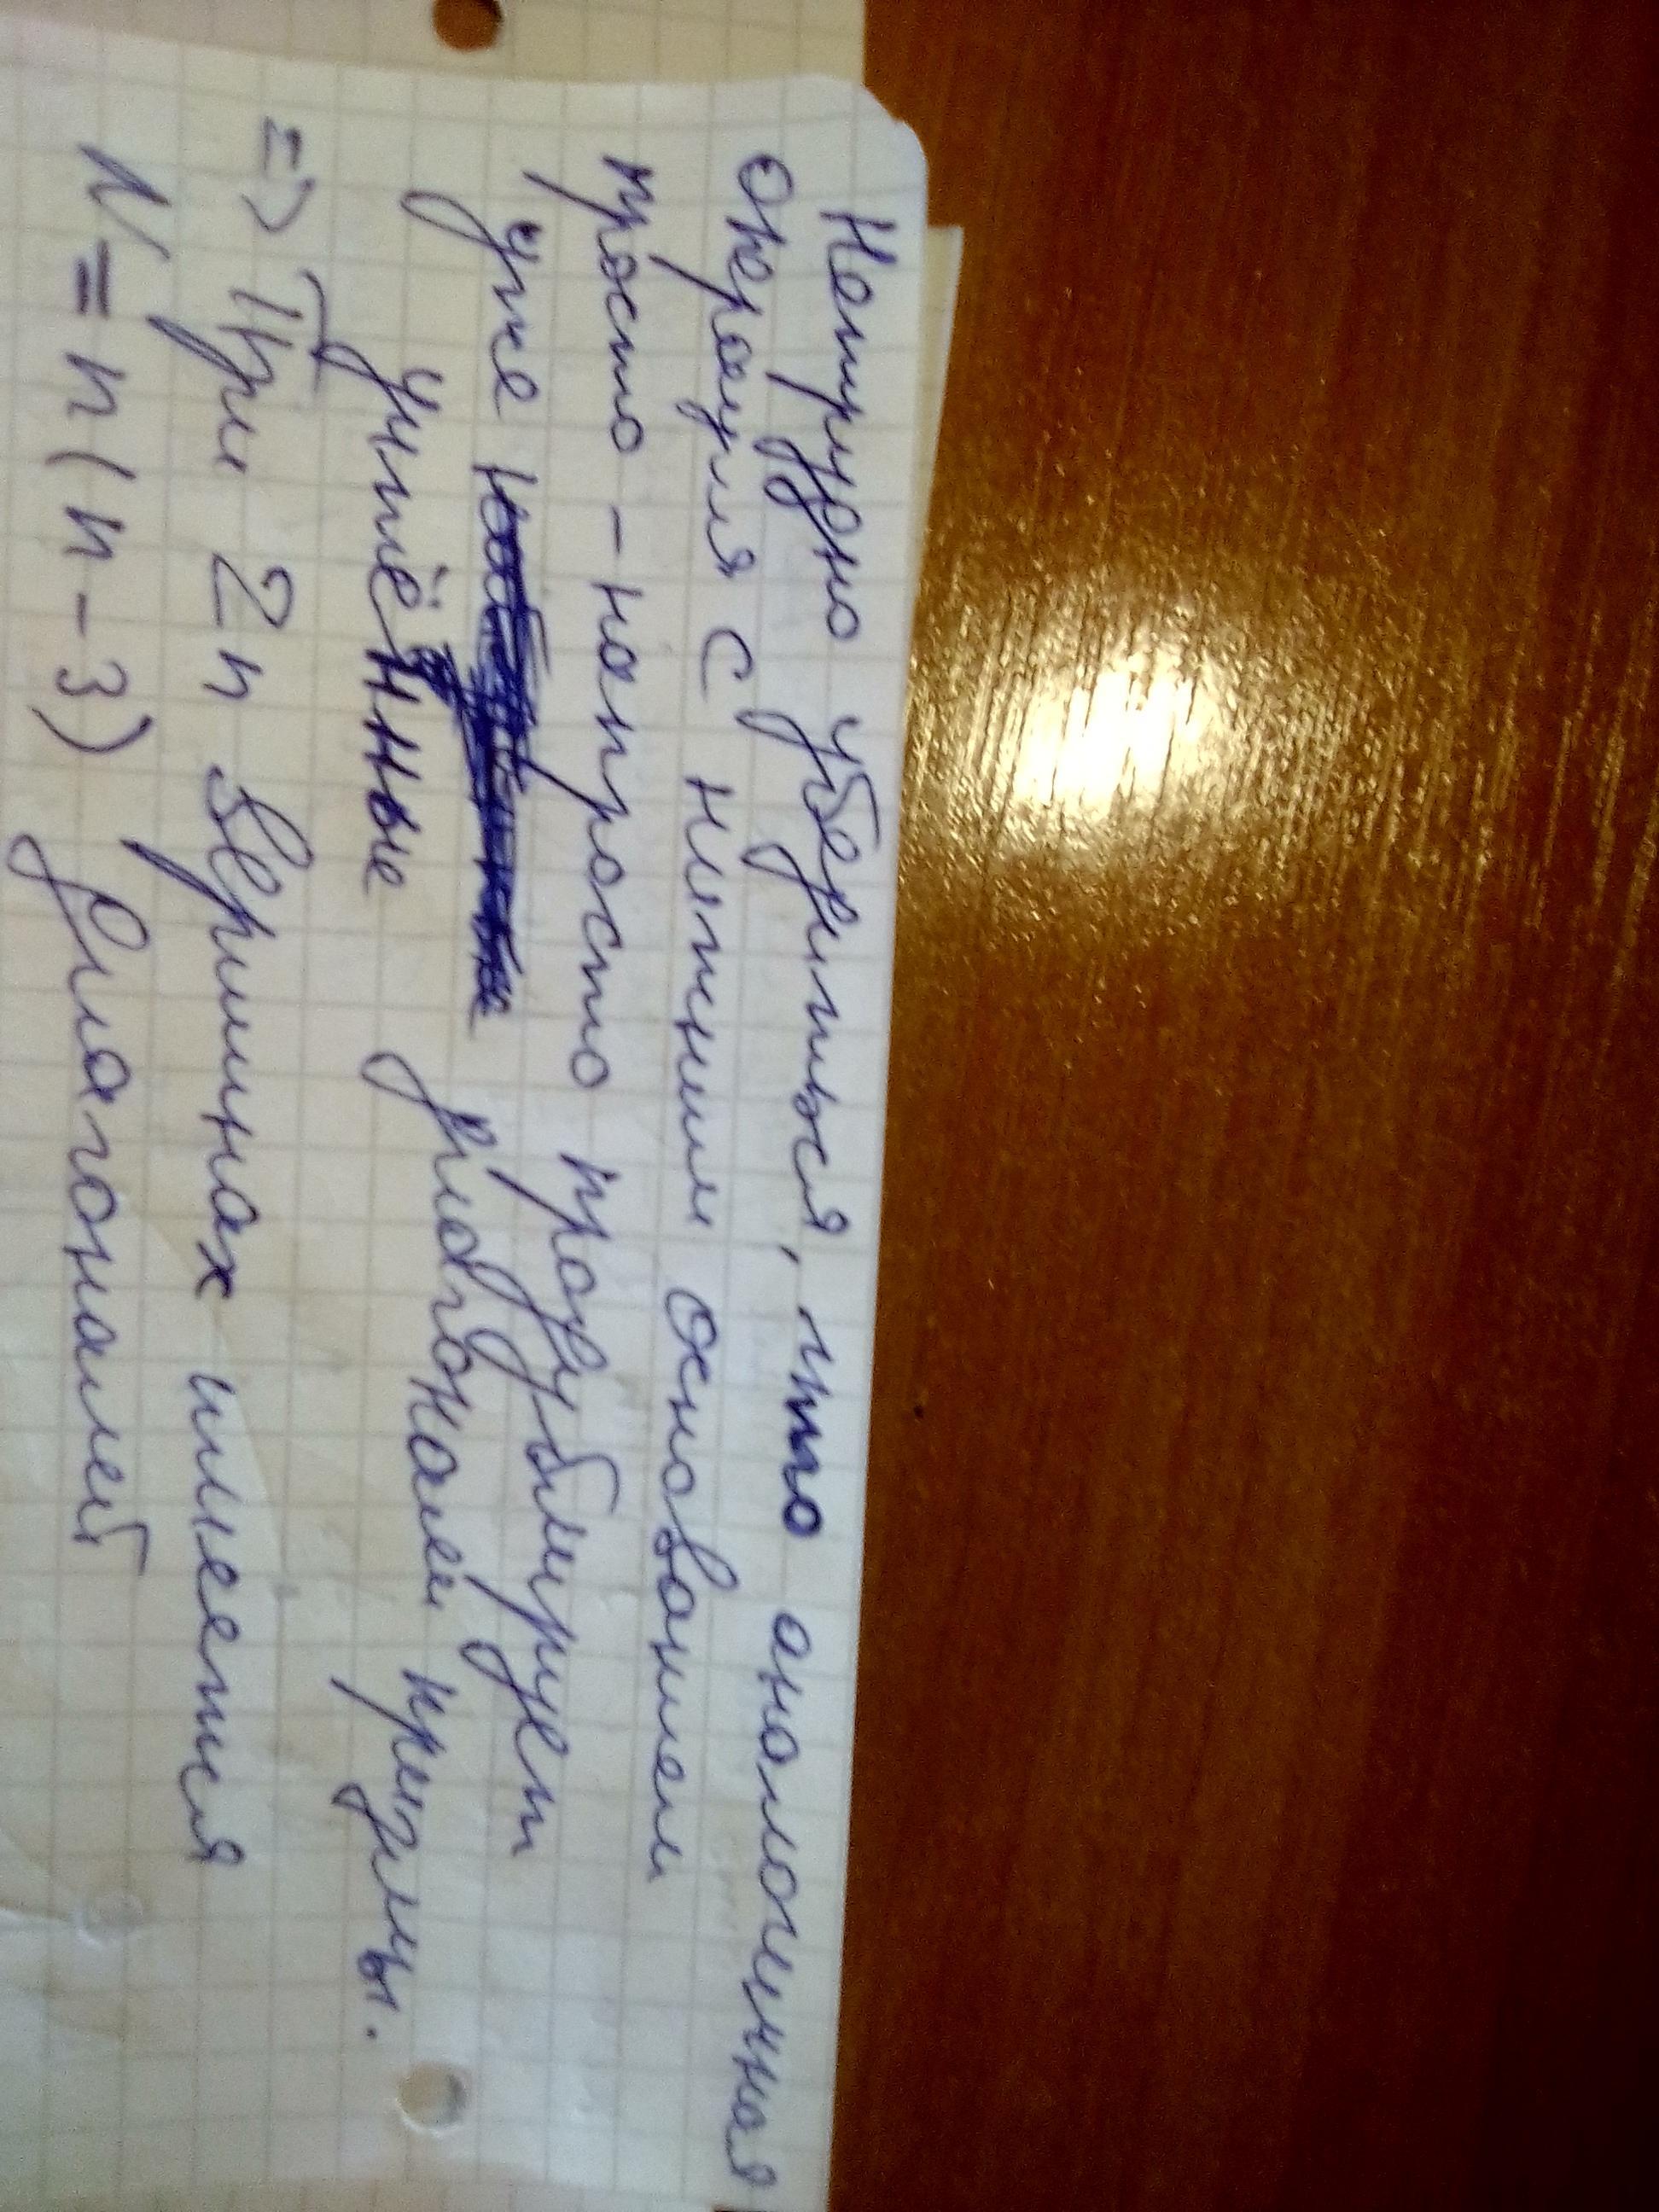 Нетрудно убедиться, что аналогичная
операция с нижним основанием
просто-напросто продублирует
уже
учтённые диагонали призмы.
=> При 2n вершинах имеется
N = n(n-3) диагоналей